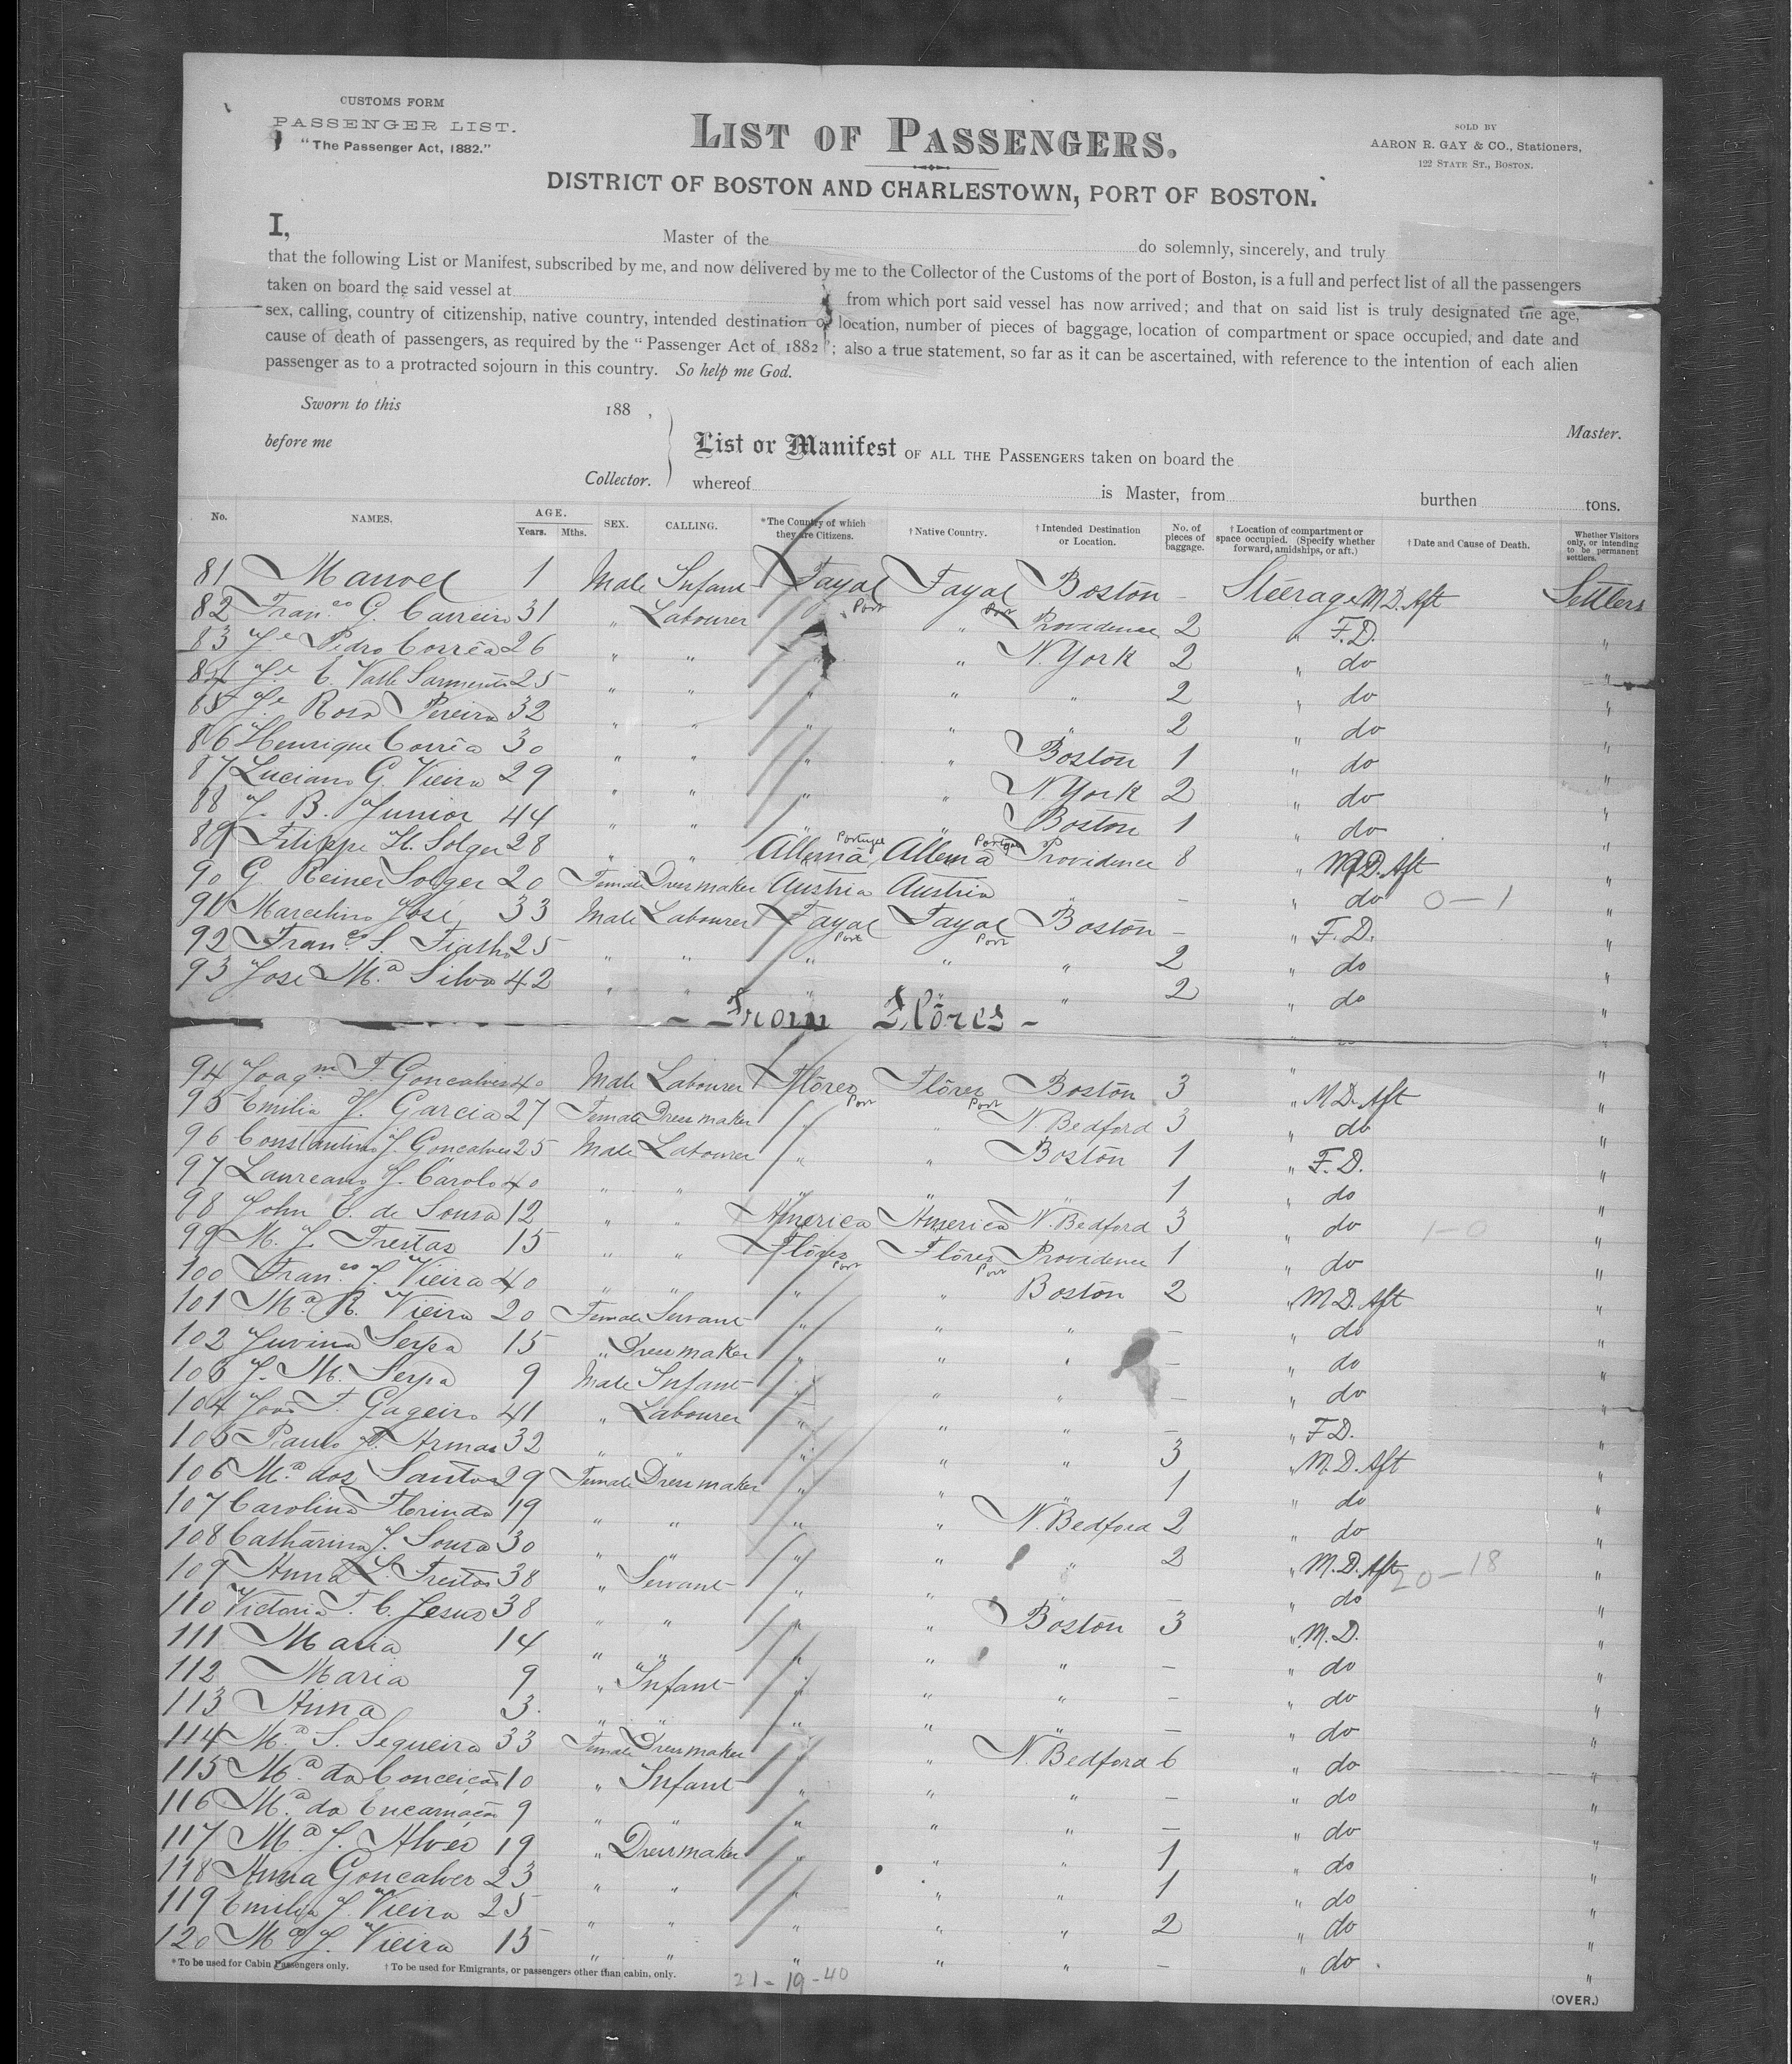 CUSTOMS FORM
PASSENGER LIST.
"The Passenger Act, 1882."
LIST OF PASSENGERS.
SOLD BY
AARON R. GAY & CO., Stationers,
122 STATE ST., BOSTON.
DISTRICT OF BOSTON AND CHARLESTOWN, PORT OF BOSTON.
I, Master of the do solemnly, sincerely, and truly
that the following List or Manifest, subscribed by me, and now delivered by me to the Collector of the Customs of the port of Boston, is a full and perfect list of all the passengers
taken on board the said vessel at from which port said vessel has now arrived; and that on said list is truly designated the age,
sex, calling, country of citizenship, native country, intended destination or location, number of pieces of baggage, location of compartment or space occupied, and date and
cause of death of passengers, as required by the "Passenger Act of 1882"; also a true statement, so far as it can be ascertained, with reference to the intention of each alien
passenger as to a protracted sojourn in this country. So help me God.
Sworn to this 188 ,
before me
Collector.
Master.
List or Manifest OF ALL THE PASSENGERS taken on board the
whereof is Master, from burthen tons.
No. NAMES. AGE. Years. Mths. SEX. CALLING. *The Country of which they are Citizens. †Native Country. †Intended Destination or Location. No. of pieces of baggage. †Location of compartment or space occupied. (Specify whether forward, amidships, or aft.) †Date and Cause of Death. Whether Visitors only, or intending to be permanent settlers.
81 Manoel 1 Male Infant Fayal Port Fayal Port Boston - Steerage M.D. Aft Settlers
82 Fran.co G. Carreiro 31 " Labourer " " Providence 2 " F.D. "
83 J.e Pedro Corrêa 26 " " " " N. York 2 " do "
84 J.e C. Valle Sarmento 25 " " " " " 2 " do "
85 J.e Rosa Pereira 32 " " " " " 2 " do "
86 Henrique Corrêa 30 " " " " Boston 1 " do "
87 Luciano G. Vieira 29 " " " " N. York 2 " do "
88 J. B. Junior 44 " " " " Boston 1 " do "
89 Filippe H. Solger 28 " " Allemã Portugal Allemã Portugal Providence 8 " M.D. Aft "
90 G. Reiner Solger 20 Female Dressmaker Austria Austria " - " do 0-1 "
91 Marcelino José 33 Male Labourer Fayal Port Fayal Port Boston - " F.D. "
92 Fran.co S. Fialho 25 " " " " " 2 " do "
93 José M.a Silva 42 " " " " " 2 " do "
- From Flôres -
94 Joaq.m F. Goncalves 40 Male Labourer Flôres Port Flôres Port Boston 3 " M.D. Aft "
95 Emilia J. Garcia 27 Female Dressmaker " " N. Bedford 3 " do "
96 Constantino J. Goncalves 25 Male Labourer " " Boston 1 " F.D. "
97 Laureano J. Carolo 40 " " " " " 1 " do "
98 John E. de Sousa 12 " " America America N. Bedford 3 " do 1-0 "
99 M. J. Freitas 15 " " Flôres Port Flôres Port Providence 1 " do "
100 Fran.co J. Vieira 40 " " " " Boston 2 " M.D. Aft "
101 M.a R. Vieira 20 Female Servant " " " - " do "
102 Juvina Serpa 15 " Dressmaker " " " - " do "
103 J. M. Serpa 9 Male Infant " " " - " do "
104 João F. Gageiro 41 " Labourer " " " - " F.D. "
105 Paulo Armas 32 " " " " " 3 " M.D. Aft "
106 M.a dos Santos 29 Female Dressmaker " " " 1 " do "
107 Carolina Florinda 19 " " " " N. Bedford 2 " do "
108 Catharina J. Sousa 30 " " " " " 2 " M.D. Aft 20-18 "
109 Anna L. Freitas 38 " Servant " " " - " do "
110 Victoria F. C. Jesus 38 " " " " Boston 3 " M.D. "
111 Maria 14 " " " " " - " do "
112 Maria 9 " Infant " " " - " do "
113 Anna 3 " " " " " - " do "
114 M.a S. Sequeira 33 Female Dressmaker " " N. Bedford 6 " do "
115 M.a da Conceição 10 " Infant " " " - " do "
116 M.a da Encarnação 9 " " " " " - " do "
117 M.a J. Alves 19 " Dressmaker " " " 1 " do "
118 Anna Goncalves 23 " " " " " 1 " do "
119 Emilia J. Vieira 25 " " " " " 2 " do "
120 M.a J. Vieira 15 " " " " " - " do "
*To be used for Cabin Passengers only. †To be used for Emigrants, or passengers other than cabin, only. 21-19-40
(OVER.)